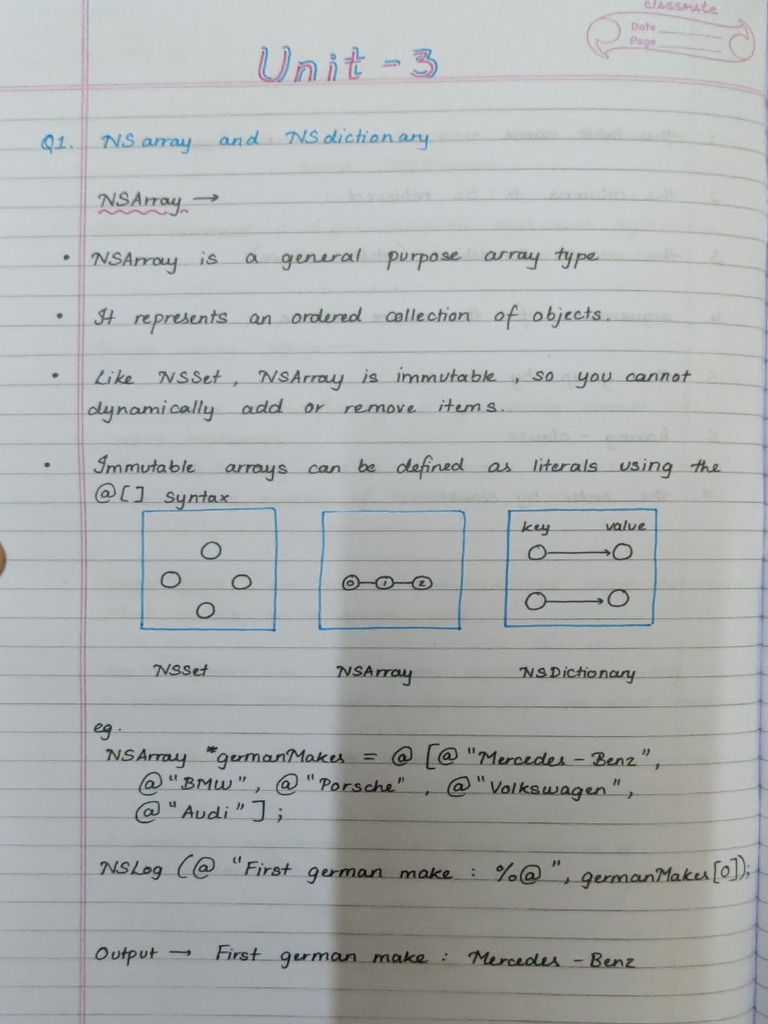 classmate
Date
Page
Unit - 3
Q1. NSarray and NSdictionary
NSArray →
• NSArray is a general purpose array type
• It represents an ordered collection of objects.
• Like NSSet, NSArray is immutable, so you cannot
dynamically add or remove items.
• Immutable arrays can be defined as literals using the
@[] syntax
key value
0 1 2
NSSet NSArray NSDictionary
eg.
NSArray *germanMakes = @ [@ "Mercedes - Benz",
@ "BMW", @ "Porsche", @ "Volkswagen",
@ "Audi"];
NSLog (@ "First german make : %@", germanMakes[0]);
Output → First german make : Mercedes - Benz